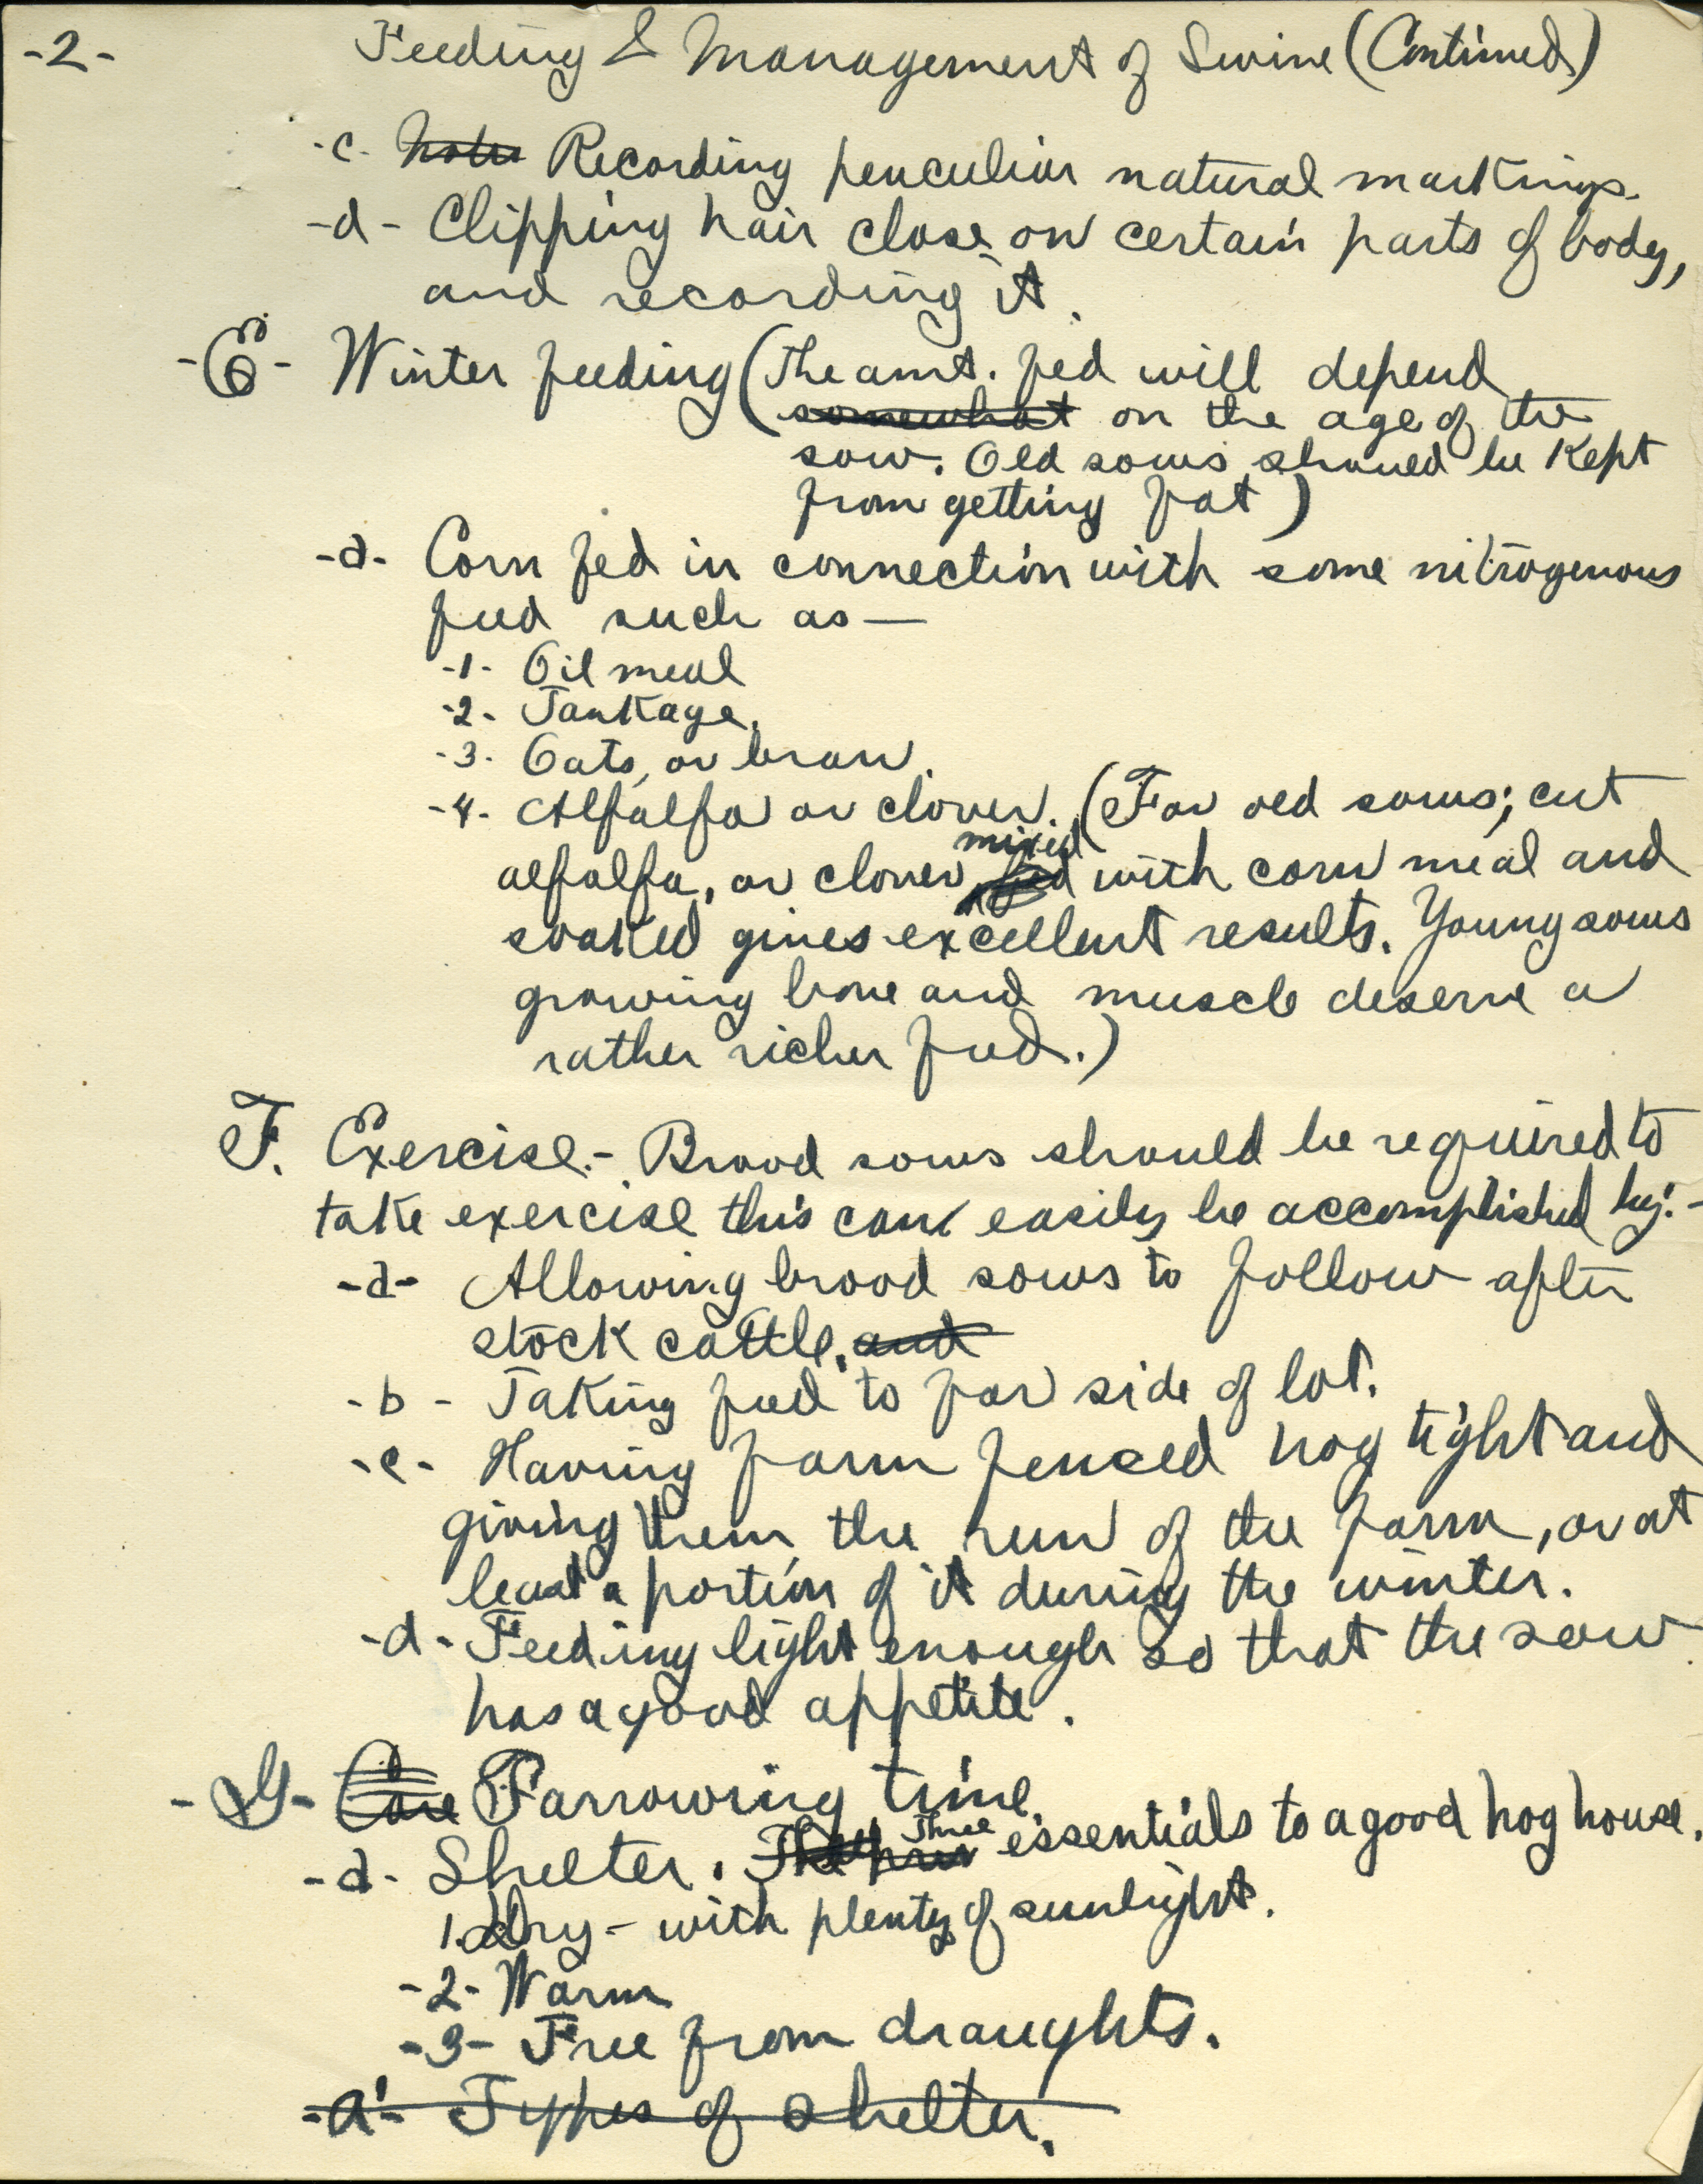 -2- Feeding & Management of Swine (Continued)
-c- Recording peuculiar natural markings.
-d- Clipping hair close on certain parts of body,
and recording it.
-E- Winter feeding (The amt. fed will depend
somewhat on the age of the
sow. Old sows should be kept
from getting fat)
-a- Corn fed in connection with some nitrogenous
feed such as —
-1- Oil meal
-2- Tankage.
-3- Oats, or bran.
-4- Alfalfa or clover. (For old sows; cut
mixed
alfalfa, or clover fed with corn meal and
soaked gives excellent results. Young sows
growing bone and muscle deserve a
rather richer feed.)
F. Exercise.- Brood sows should be required to
take exercise this can easily be accomplished by:-
-a- Allowing brood sows to follow after
stock cattle. and
-b- Taking feed to far side of lot.
-c- Having farm fenced hog tight and
giving them the run of the farm, or at
least a portion of it during the winter.
-d- Feeding light enough so that the sow
has a good appetite.
-G- Care Farrowing time.
Three
-a- Shelter. essentials to a good hog house.
1. Dry - with plenty of sunlight.
-2- Warm
-3- Free from draughts.
-a'- Types of shelter.